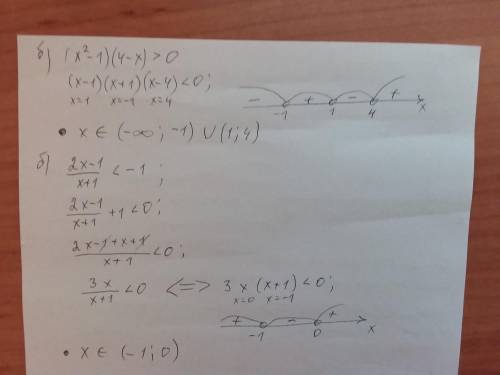 б) (x²-1)(4-x)>0
(x-1)(x+1)(x-4)<0;
x=1 x=-1 x=4
- + - +
-1 1 4 x
• x ∈ (-∞; -1) ∪ (1; 4)
б) \frac{2x-1}{x+1} < -1 ;
\frac{2x-1}{x+1} +1<0;
\frac{2x-1+x+1}{x+1} <0;
\frac{3x}{x+1} <0 <=> 3x(x+1)<0;
x=0 x=-1
+ - +
-1 0 x
• x ∈ (-1; 0)